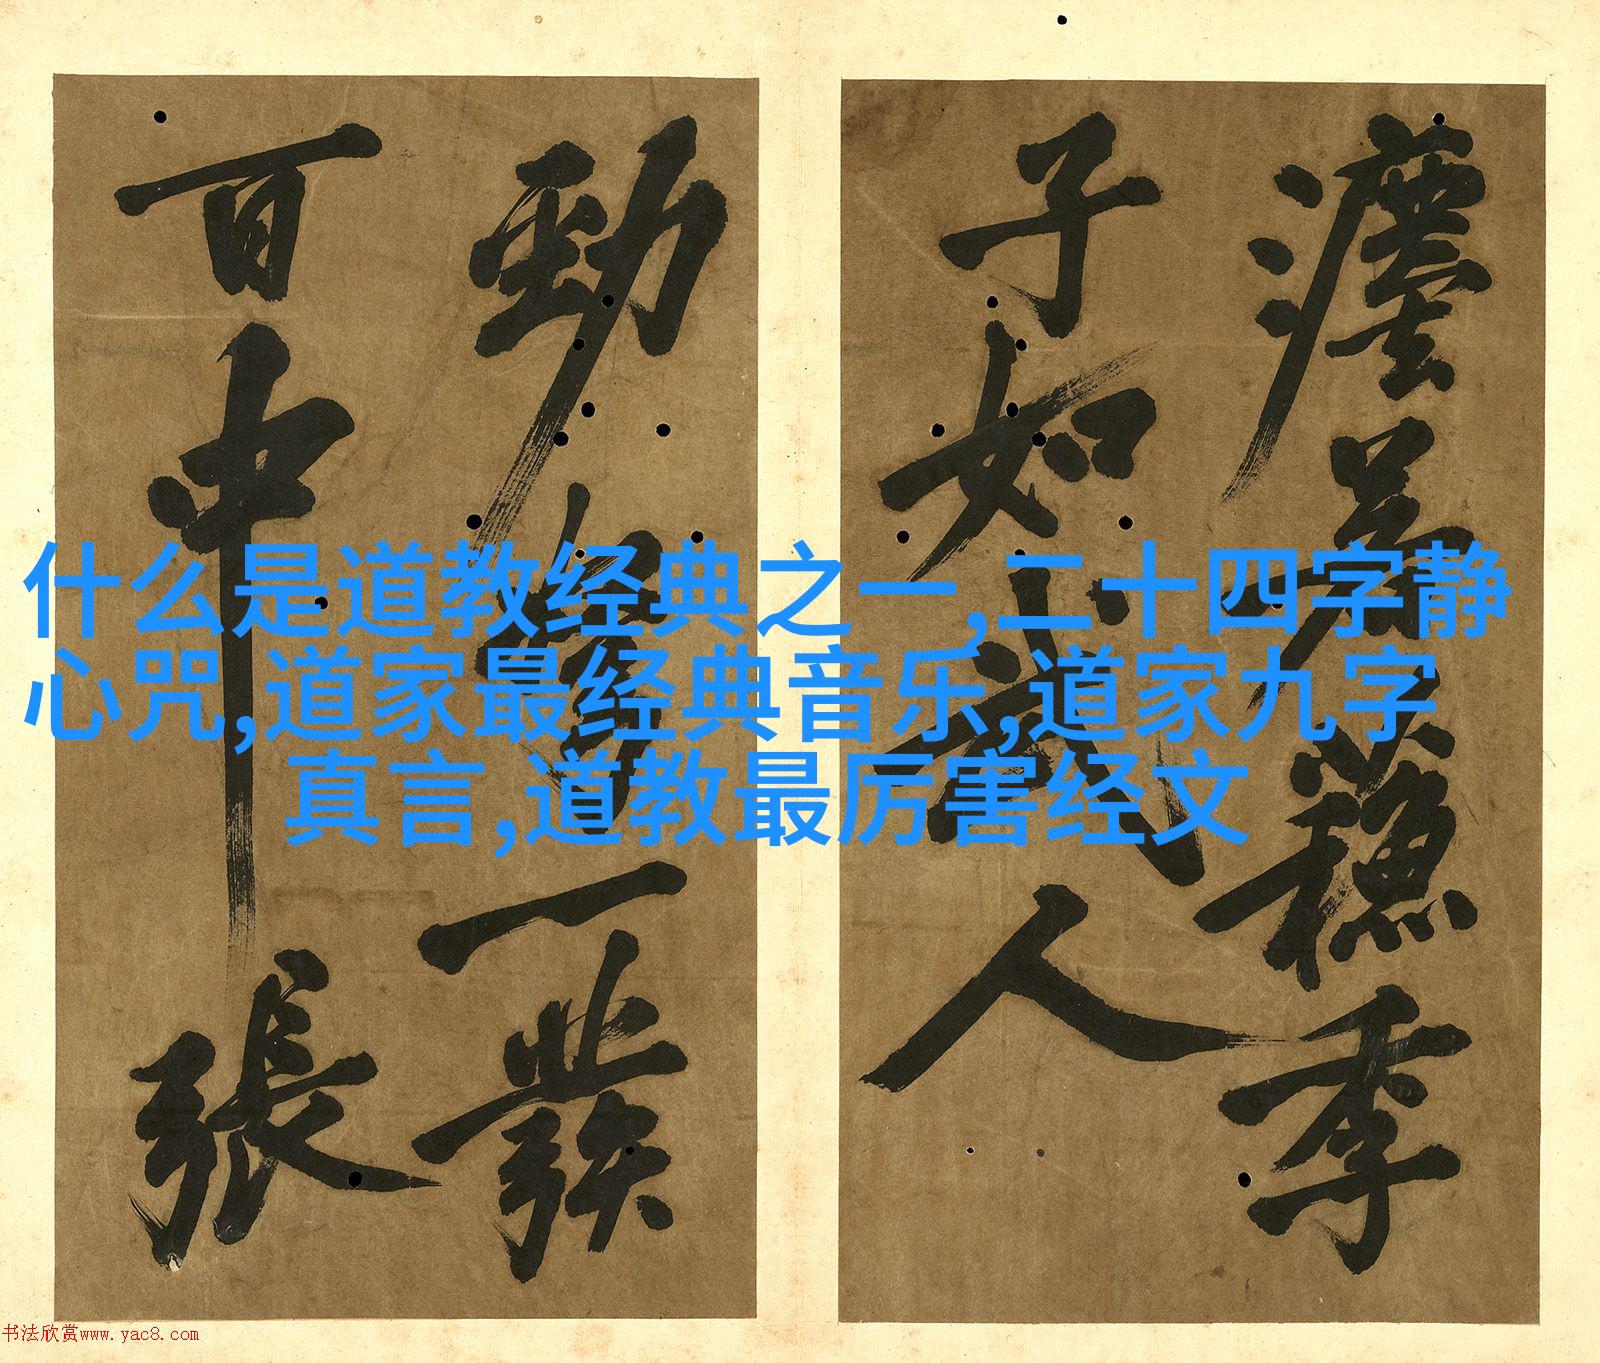 穗季
子如小武人
勁弩一發
百中張
什么是道教经典之一,二十四字静
心咒,道家最经典音乐,道家九字
真言,道教最厉害经文
书法欣赏www.yac8.com